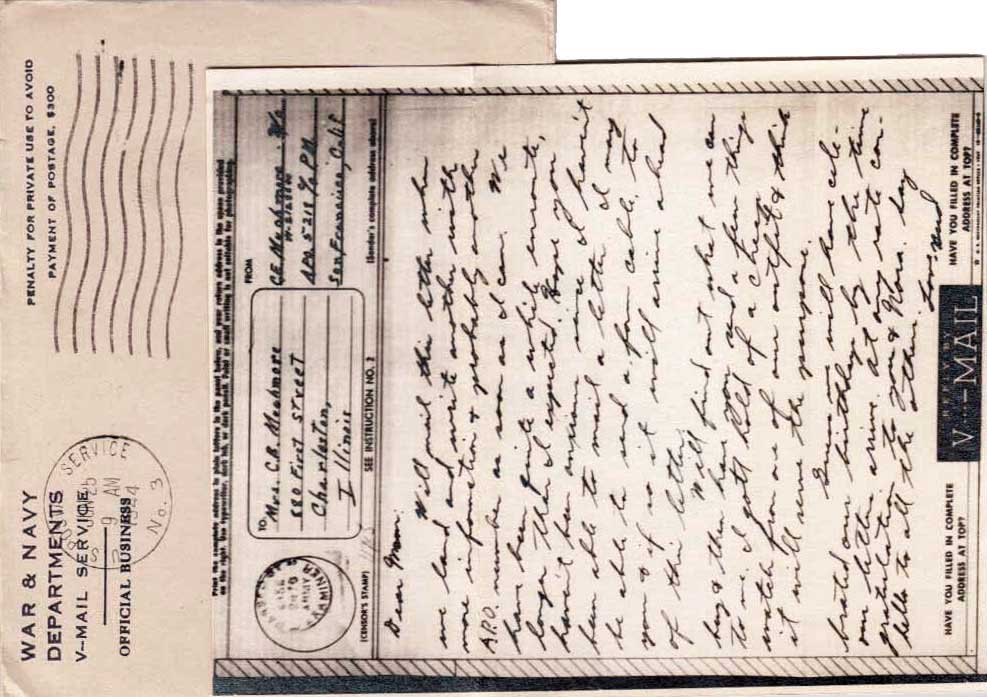 WAR & NAVY
DEPARTMENTS
V-MAIL SERVICE
OFFICIAL BUSINESS
PENALTY FOR PRIVATE USE TO AVOID
PAYMENT OF POSTAGE, $300
SERVICE
9 AM
1944
No. 3
Print the complete address in plain letters in the panel below, and your return address in the space provided
on the right. Use typewriter, dark ink, or dark pencil. Faint or small writing is not suitable for photographing.
TO
Mrs. C.B. Meshmore
880 First Street
Charleston,
Illinois
FROM
C.E. Meshmore
APO 5218 % P.M.
San Francisco, Calif
(CENSOR'S STAMP)
SEE INSTRUCTION NO. 2
(Sender's complete address above)
PASSED BY
ARMY
EXAMINER
Dear Mom:
Will mail this letter when
we land and write another with
more information & probably another
A.P.O. number as soon as I can. We
have been quite a while enroute,
longer than I expected. Hope you
haven't been worrying since I haven't
been able to mail a letter. I may
be able to send a form cable to
you & if so it will arrive ahead
of this letter.
Will find out what we can
buy & then have you send a few things
to me. I got hold of a cheap
watch from one of our outfit & think
it will serve the purpose.
will have cele-
brated our birthdays by the time
our letters arrive. At any rate con-
gratulations to you & Nora. Say
hello to all the others.
Love,
HAVE YOU FILLED IN COMPLETE
ADDRESS AT TOP?
REPLY BY
V···—MAIL
HAVE YOU FILLED IN COMPLETE
ADDRESS AT TOP?